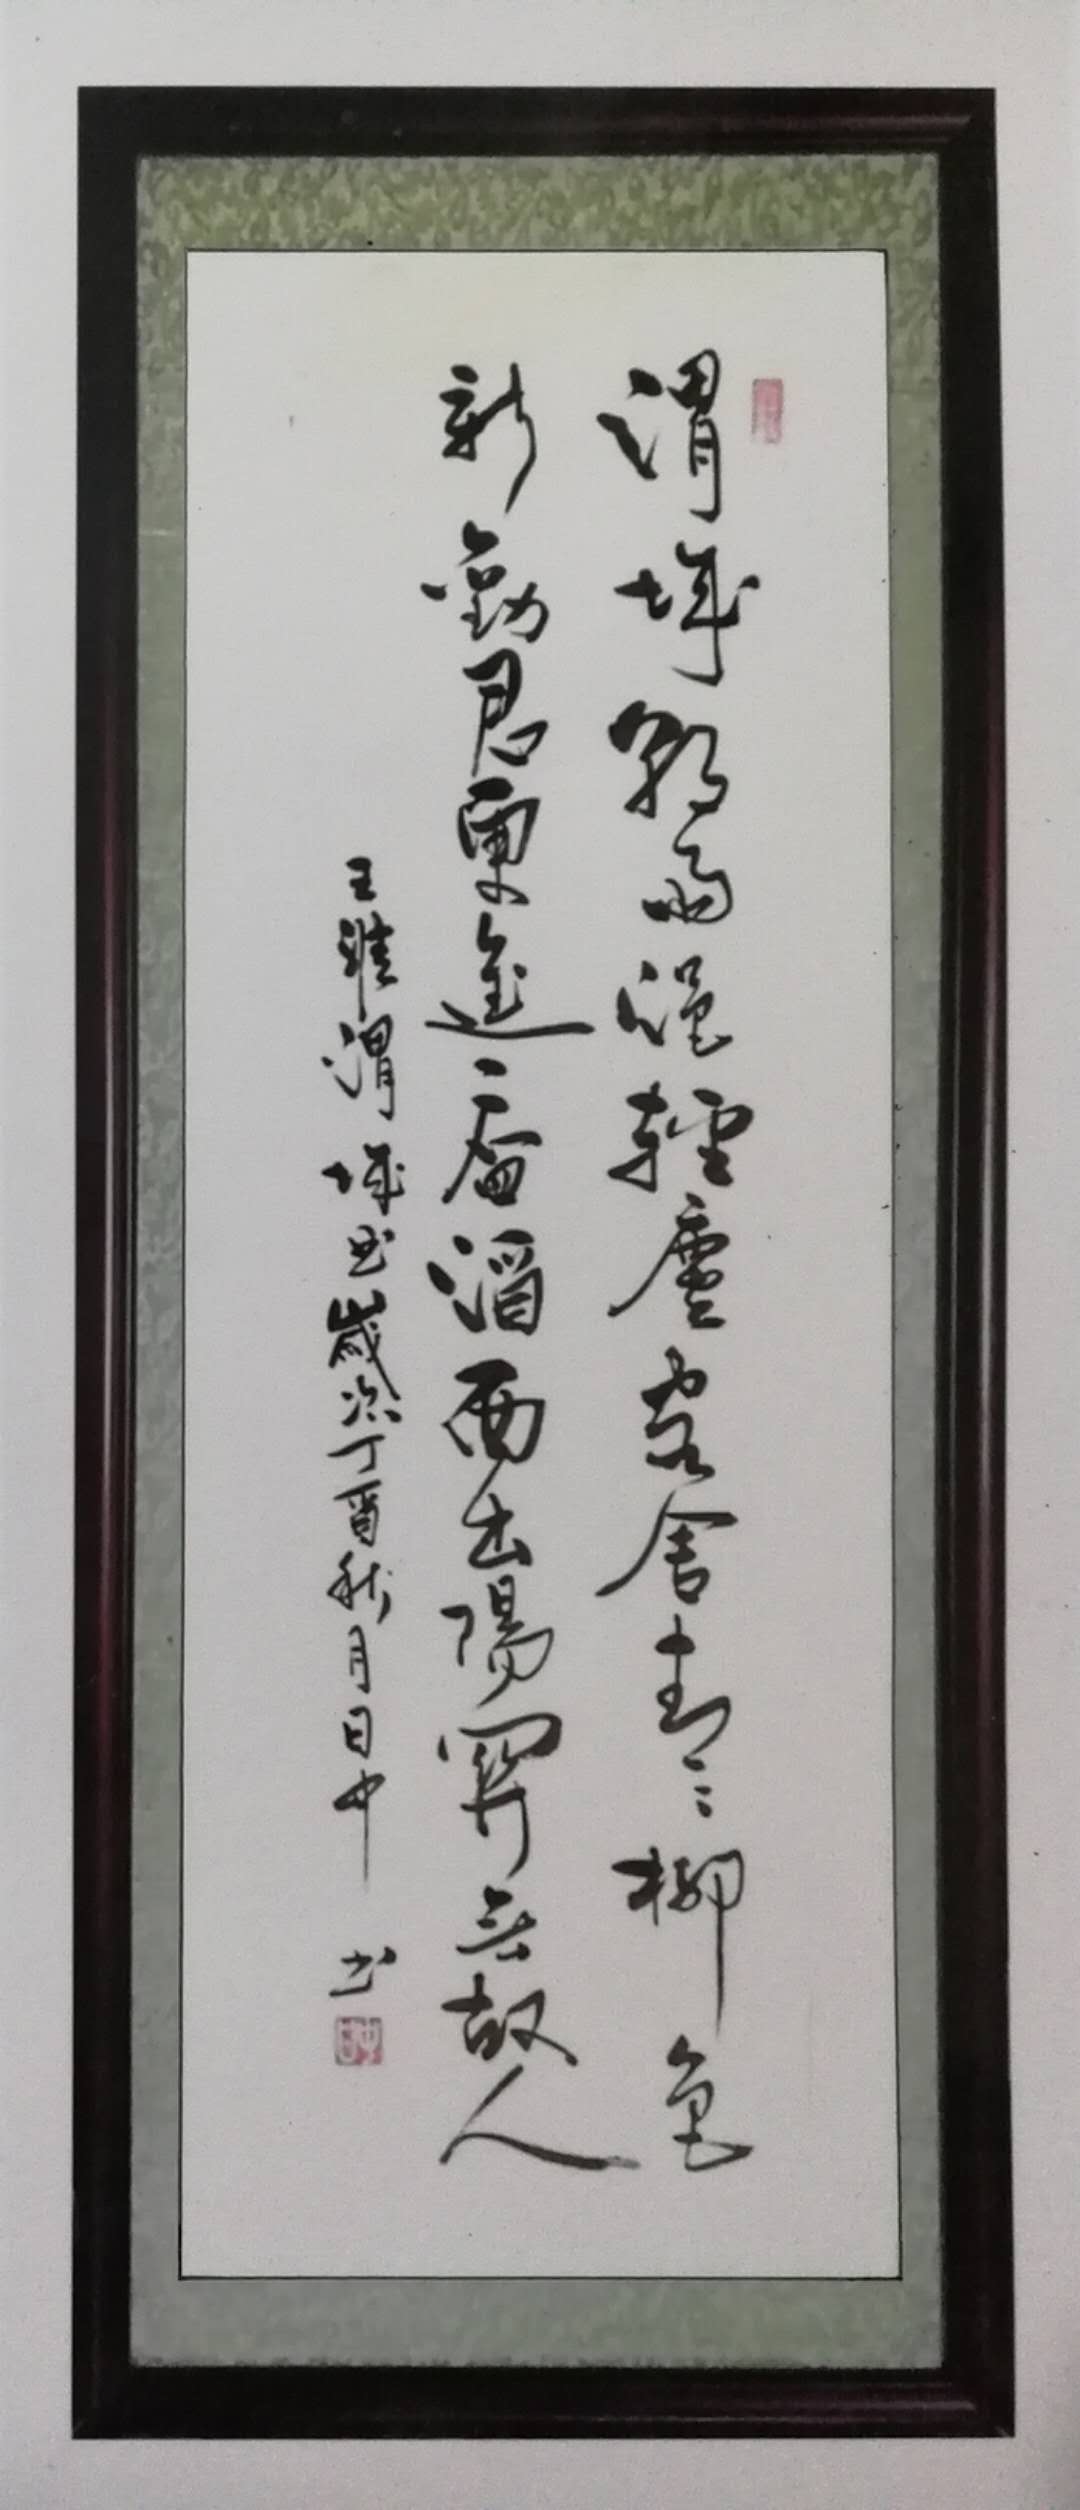 渭城朝雨浥輕塵客舍青〻柳色
新勸君更進一杯酒西出陽關無故人
王維渭城曲歲次丁酉秋月日中 书